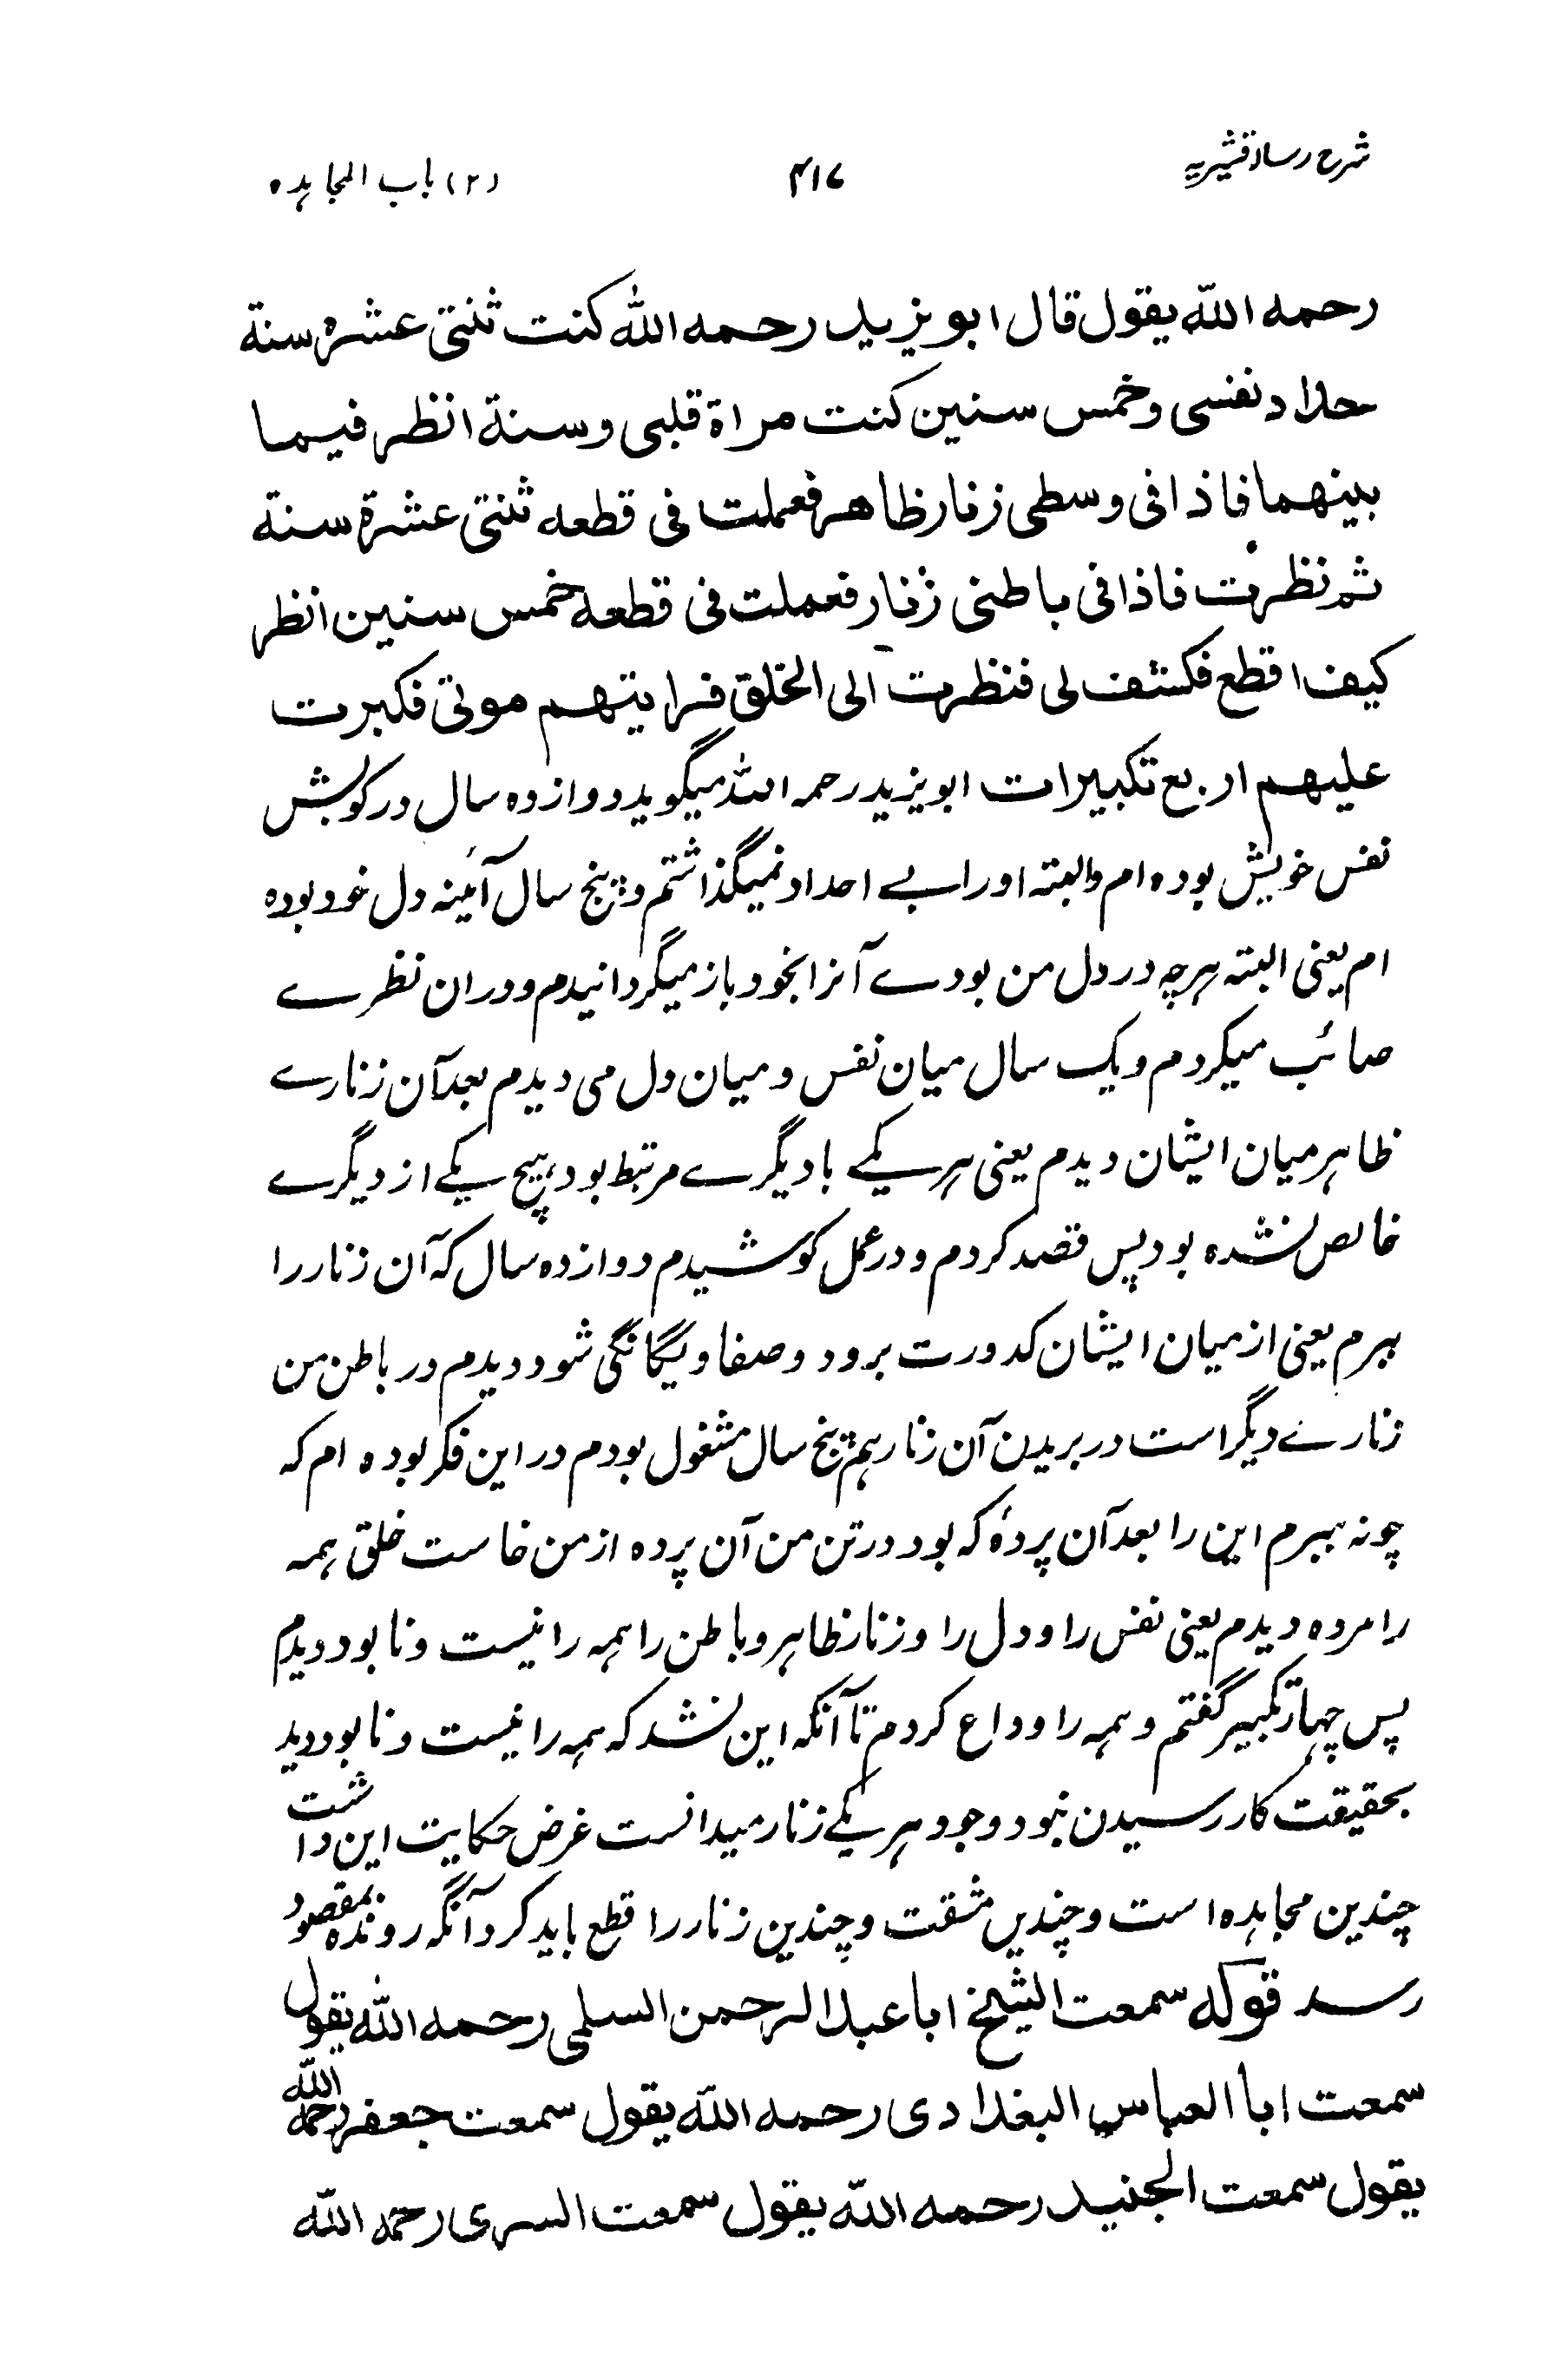 شرح رسالہ قشیریہ ۴۱۷ (۲) باب المجاہدہ
رحمه الله يقول قال ابو يزيد رحمه الله كنت ثنتی عشرة سنة
حداد نفسی وخمس سنين كنت مراة قلبی وسنة انظر فيما
بينهما فاذا فی وسطی زنار ظاهر فعملت فی قطعه ثنتی عشرة سنة
ثم نظرت فاذا فی باطنی زنار فعملت فی قطعه خمس سنين انظر
كيف اقطع فكشف لی فنظرت الی الخلق فرايتهم موتی فكبرت
عليهم اربع تكبيرات ابو یزید رحمہ اللہ میگوید دوازده سال در کوبش
نفس خویش بوده ام والبتہ اورا بے احداد نمیگذاشتم و پنج سال آئینہ دل خود بوده
ام یعنی البتہ ہرچہ در دل من بودے آنرا بخود باز میگردانیدم ودران نظرے
صائب میکردم ویک سال میان نفس و میان دل می دیدم بعد آن زنارے
ظاہر میان ایشان دیدم یعنی ہر یکے با دیگرے مرتبط بود ہیچ یکے از دیگرے
خالص نشده بود پس قصد کردم و در عمل کوشیدم دوازده سال کہ آن زنار را
ببرم یعنی از میان ایشان کدورت برود وصفا ویگانگی شود دیدم در باطن من
زنارے دیگر است در بریدن آن زنار ہم پنج سال مشغول بودم در این فکر بوده ام کہ
چونہ ببرم این را بعد آن پردۂ کہ بود در تن من آن پرده از من خاست خلق ہمہ
را مرده دیدم یعنی نفس را و دل را وزنار ظاہر وباطن را ہمہ را نیست و نابود دیدم
پس چہار تکبیر گفتم و ہمہ را وداع کردم تا آنکہ این نشد کہ ہمہ را نیست و نابود دید
بحقیقت کار رسیدن نبود وجود ہر یکے زنار میدانست غرض حکایت این داشت
چندین مجاہده است و چندیں مشقت و چندین زنار را قطع باید کرد آنگہ رونده بمقصود
رسد قوله سمعت الشيخ ابا عبد الرحمن السلمی رحمه الله يقول
سمعت ابا العباس البغدادی رحمه الله يقول سمعت جعفر رحمه الله
يقول سمعت الجنيد رحمه الله يقول سمعت السری رحمه الله